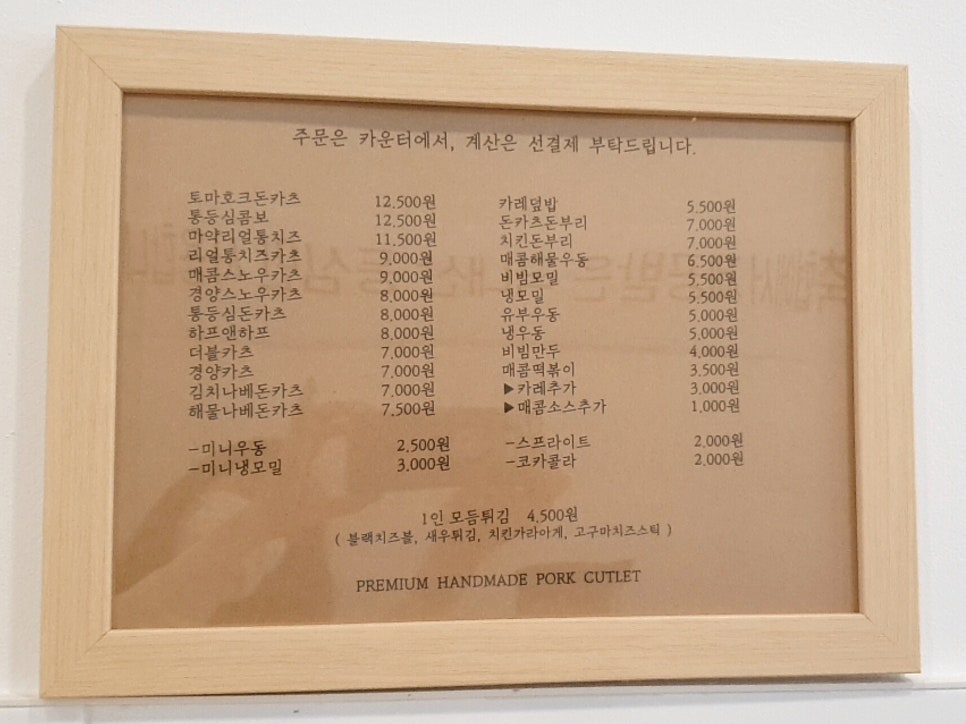 주문은 카운터에서, 계산은 선결제 부탁드립니다.
토마호크돈카츠 12,500원
통등심콤보 12,500원
마약리얼통치즈 11,500원
리얼통치즈카츠 9,000원
매콤스노우카츠 9,000원
경양스노우카츠 8,000원
통등심돈카츠 8,000원
하프앤하프 8,000원
더블카츠 7,000원
경양카츠 7,000원
김치나베돈카츠 7,000원
해물나베돈카츠 7,500원
-미니우동 2,500원
-미니냉모밀 3,000원
카레덮밥 5,500원
돈카츠돈부리 7,000원
치킨돈부리 7,000원
매콤해물우동 6,500원
비빔모밀 5,500원
냉모밀 5,500원
유부우동 5,000원
냉우동 5,000원
비빔만두 4,000원
매콤떡볶이 3,500원
▶카레추가 3,000원
▶매콤소스추가 1,000원
-스프라이트 2,000원
-코카콜라 2,000원
1인 모듬튀김 4,500원
( 블랙치즈볼, 새우튀김, 치킨가라아게, 고구마치즈스틱 )
PREMIUM HANDMADE PORK CUTLET